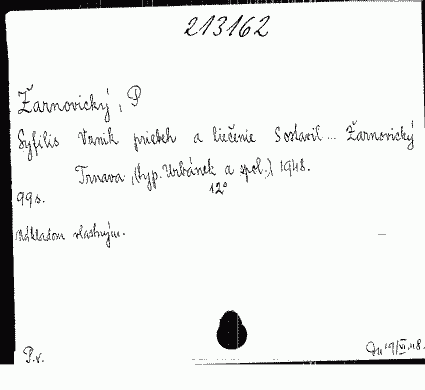 213162
Žarnovický, P
Syfilis Vznik priebeh a liečenie Sostavil... Žarnovický
Trnava, (typ. Urbánek a spol.) 1948.
12°
99 s.
Nákladom vlastným.
P.v.
19/VI.48.